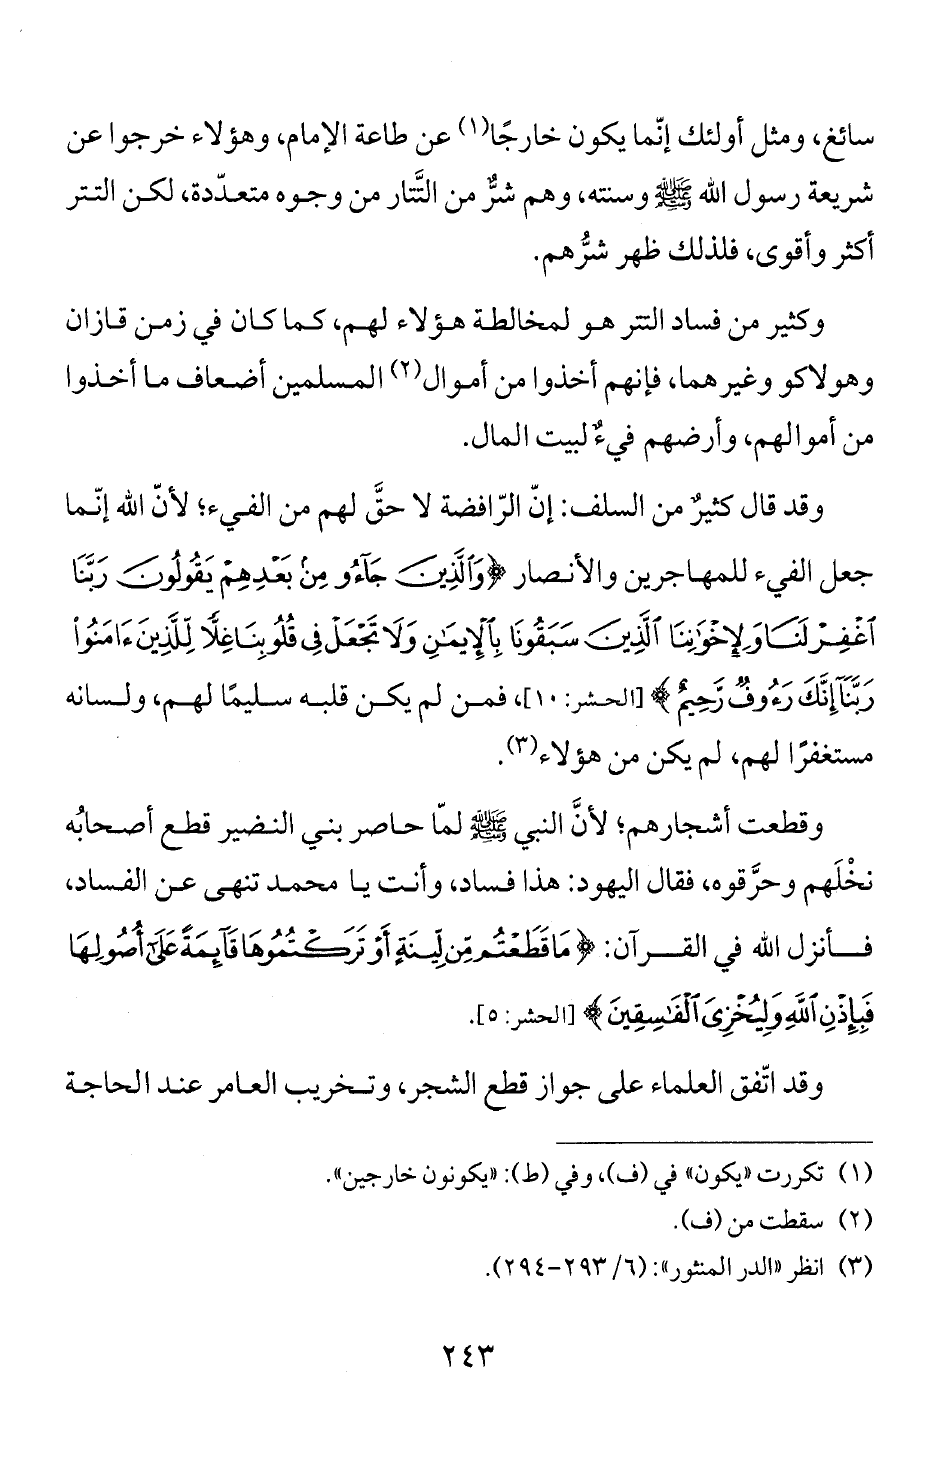 سائغ، ومثل أولئك إنّما يكون خارجًا(١) عن طاعة الإمام، وهؤلاء خرجوا عن
شريعة رسول الله ﷺ وسنته، وهم شرٌّ من التَّتار من وجوه متعدّدة، لكن التتر
أكثر وأقوى، فلذلك ظهر شرُّهم.
وكثير من فساد التتر هو لمخالطة هؤلاء لهم، كما كان في زمن قازان
وهولاكو وغيرهما، فإنهم أخذوا من أموال(٢) المسلمين أضعاف ما أخذوا
من أموالهم، وأرضهم فيءٌ لبيت المال.
وقد قال كثيرٌ من السلف: إنّ الرّافضة لا حقَّ لهم من الفيء؛ لأنّ الله إنّما
جعل الفيء للمهاجرين والأنصار ﴿وَٱلَّذِينَ جَآءُو مِنۢ بَعْدِهِمْ يَقُولُونَ رَبَّنَا
ٱغْفِرْ لَنَا وَلِإِخْوَٰنِنَا ٱلَّذِينَ سَبَقُونَا بِٱلْإِيمَٰنِ وَلَا تَجْعَلْ فِى قُلُوبِنَا غِلًّا لِّلَّذِينَ ءَامَنُوا۟
رَبَّنَآ إِنَّكَ رَءُوفٌ رَّحِيمٌ﴾ [الحشر: ١٠]، فمن لم يكن قلبه سليمًا لهم، ولسانه
مستغفرًا لهم، لم يكن من هؤلاء(٣).
وقطعت أشجارهم؛ لأنَّ النبي ﷺ لمّا حاصر بني النضير قطع أصحابُه
نخْلَهم وحرَّقوه، فقال اليهود: هذا فساد، وأنت يا محمد تنهى عن الفساد،
فأنزل الله في القرآن: ﴿مَا قَطَعْتُم مِّن لِّينَةٍ أَوْ تَرَكْتُمُوهَا قَآئِمَةً عَلَىٰٓ أُصُولِهَا
فَبِإِذْنِ ٱللَّهِ وَلِيُخْزِىَ ٱلْفَٰسِقِينَ﴾ [الحشر: ٥].
وقد اتّفق العلماء على جواز قطع الشجر، وتخريب العامر عند الحاجة
(١) تكررت «يكون» في (ف)، وفي (ط): «يكونون خارجين».
(٢) سقطت من (ف).
(٣) انظر «الدر المنثور»: (٦/ ٢٩٣-٢٩٤).
٢٤٣